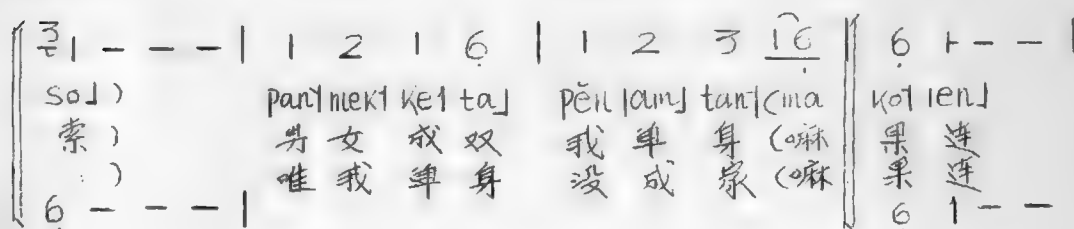 3 1 - - - | 1 2 1 6̣ | 1 2 3 1 6̣ || 6̣ 1 - - |
so˩ ) pan˥ mek˥ ke˥ ta˩ pěn lam˩ tan˥ (ma ko˥ len˩
索 ) 男 女 成 双 我 单 身 (嘛 果 连
) 唯 我 单 身 没 成 家 (嘛 果 连
6̣ - - - | 6 1 - -